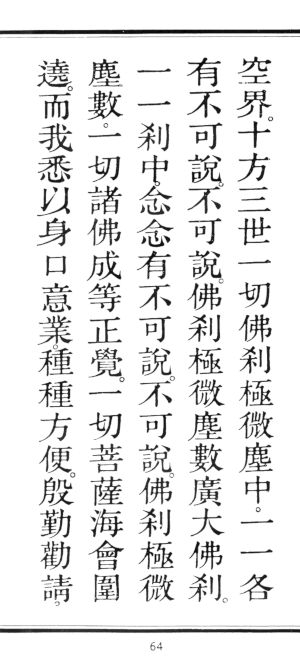 空界。十方三世一切佛刹極微塵中。一一各
有不可說。不可說。佛刹極微塵數廣大佛刹。
一一刹中。念念有不可說。不可說。佛刹極微
塵數。一切諸佛成等正覺。一切菩薩海會圍
遶。而我悉以身口意業。種種方便。殷勤勸請。
64